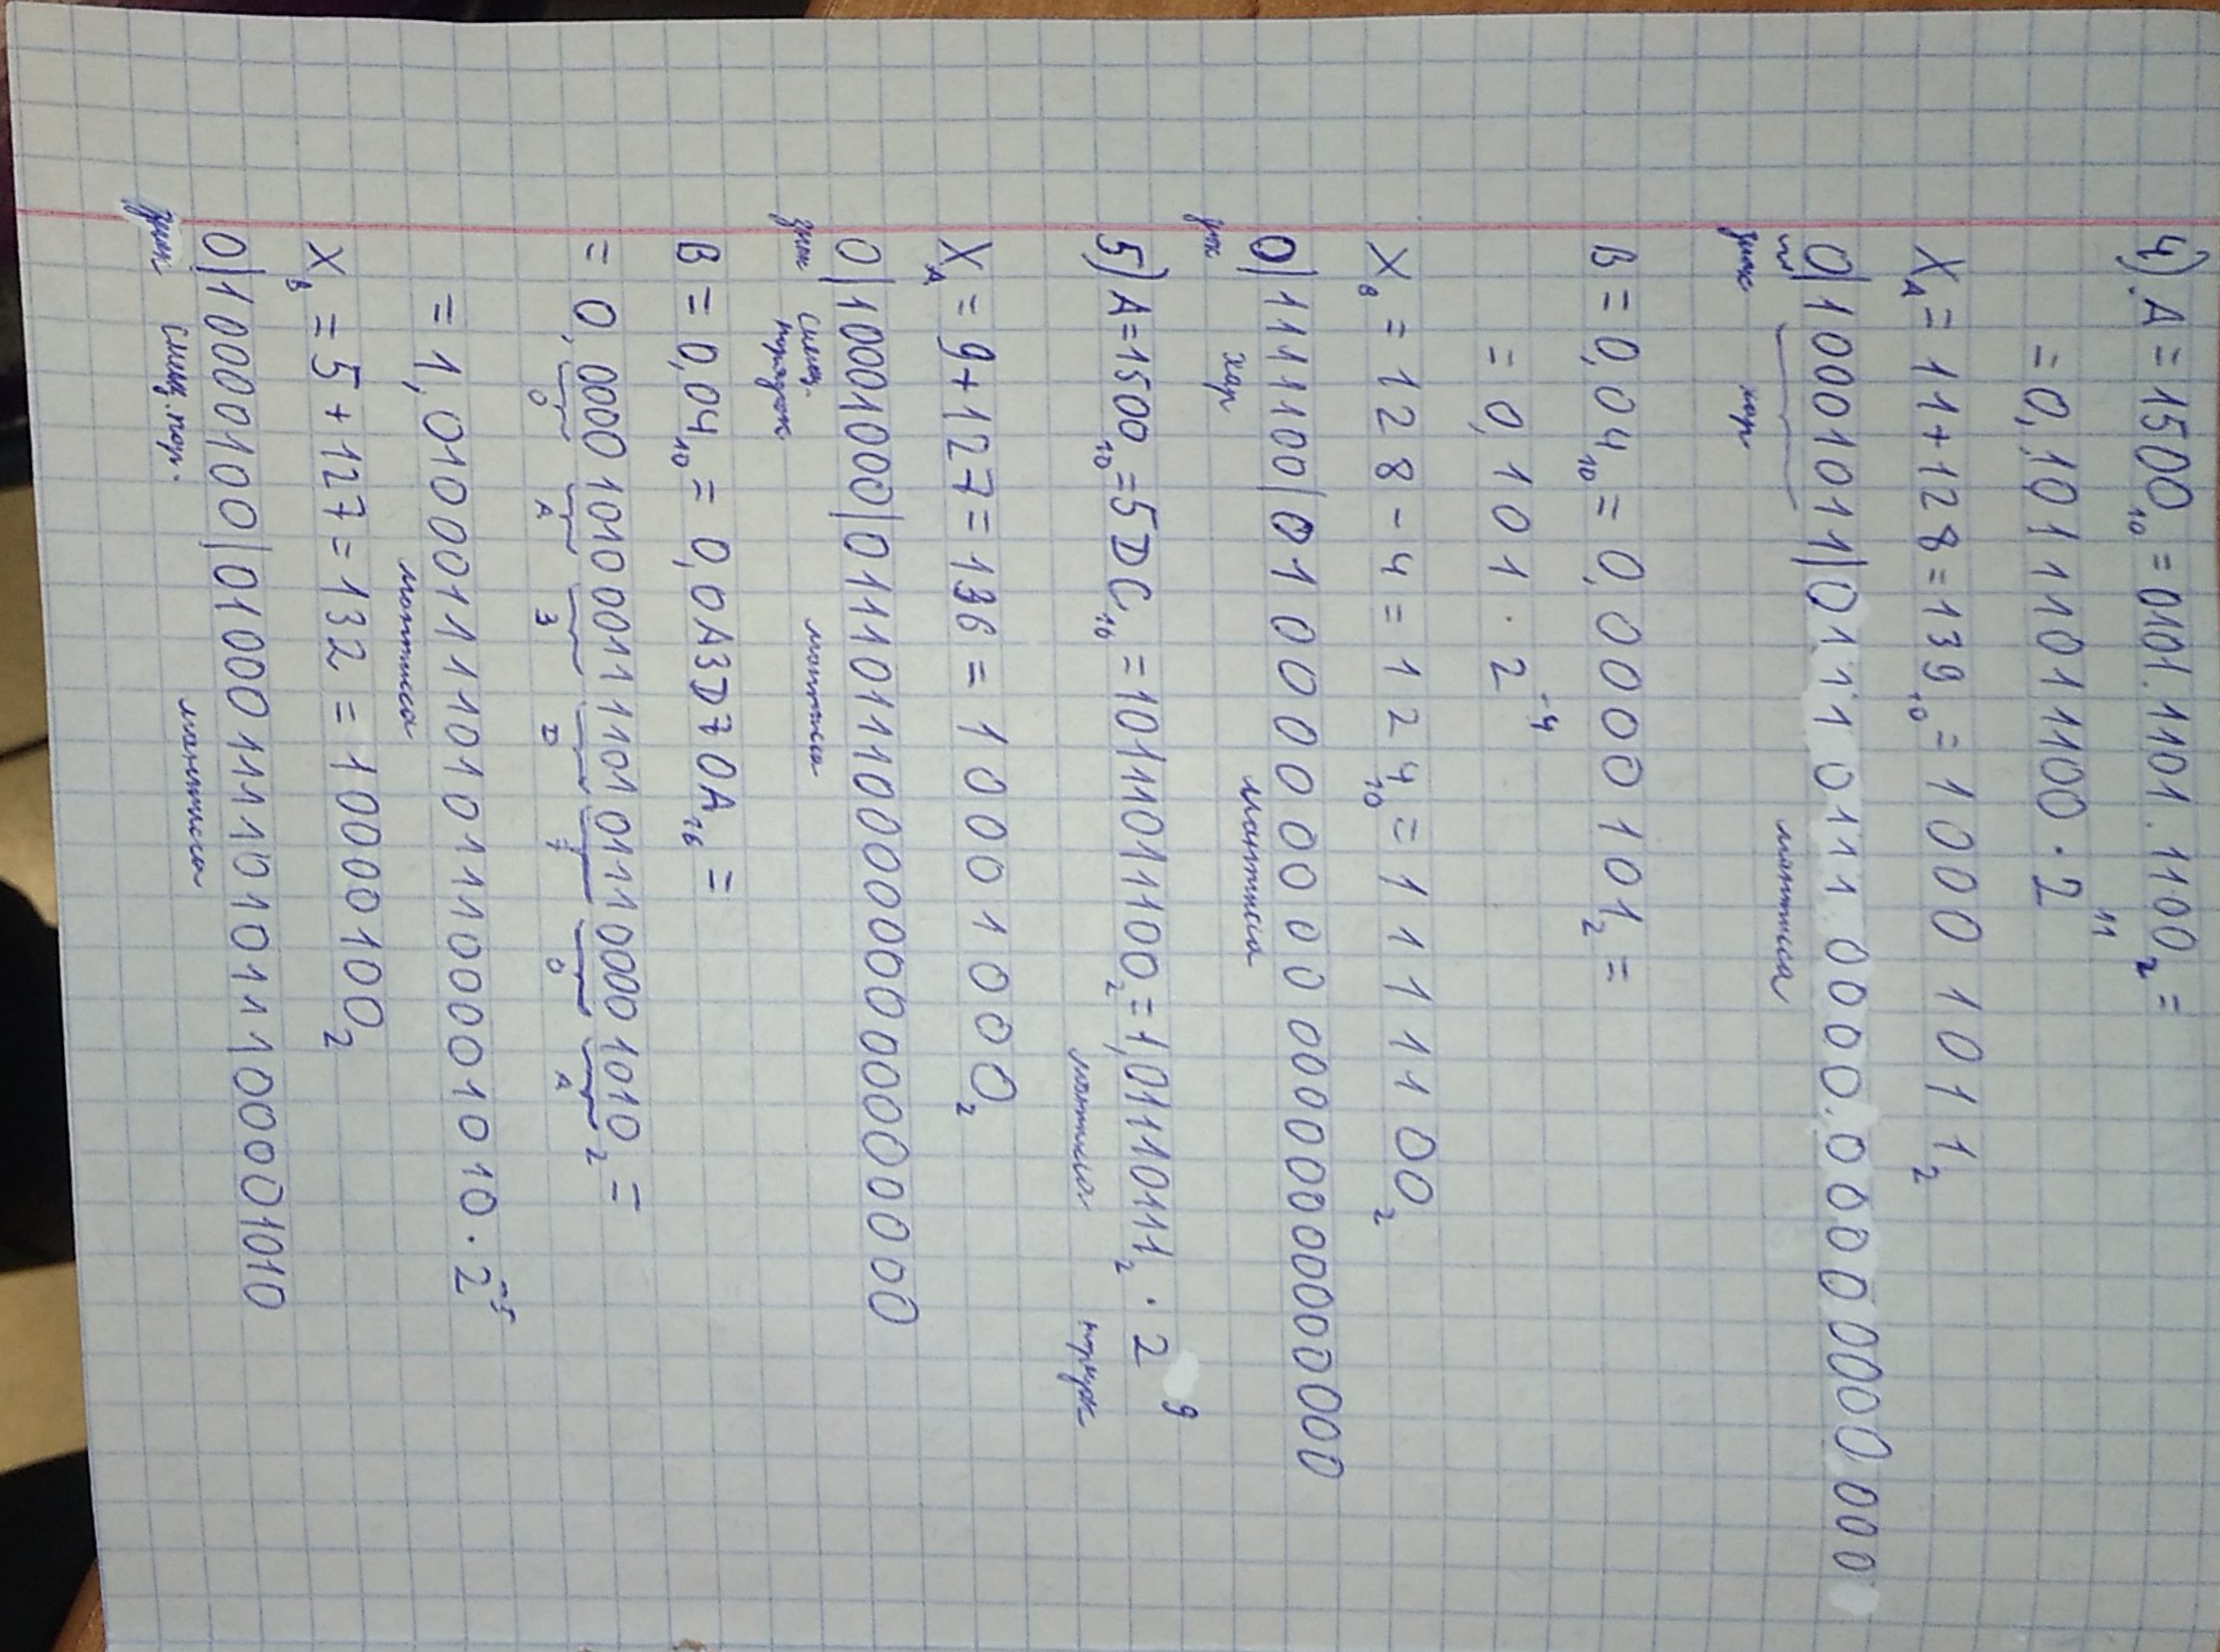 4) A = 1500₁₀ = 0101.1101.1100₂ =
= 0,10111011100 · 2¹¹
X_A = 11 + 128 = 139₁₀ = 10001011₂
0|10001011|0111 0111 0000.0000 0000 000
знак хар мантисса
B = 0,04₁₀ = 0,0000101₂ =
= 0,101 · 2⁻⁴
X_B = 128 - 4 = 124₁₀ = 1111100₂
0|1111100|010000000000000000000000
знк хар мантисса
5) A = 1500₁₀ = 5DC₁₆ = 10111011100₂ = 1,01110111₂ · 2⁹
мантисса порядок
X_A = 9 + 127 = 136 = 10001000₂
0|10001000|01110111000000000000000
знак смещ. порядок мантисса
B = 0,04₁₀ = 0,0A3D70A₁₆ =
= 0,0000 1010 0011 1101 0111 0000 1010₂ =
0 A 3 D 7 0 A
= 1,01000111101011100001010 · 2⁻⁵
мантисса
X_B = 5 + 127 = 132 = 10000100₂
0|10000100|01000111101011100001010
знак. смещ. пор. мантисса